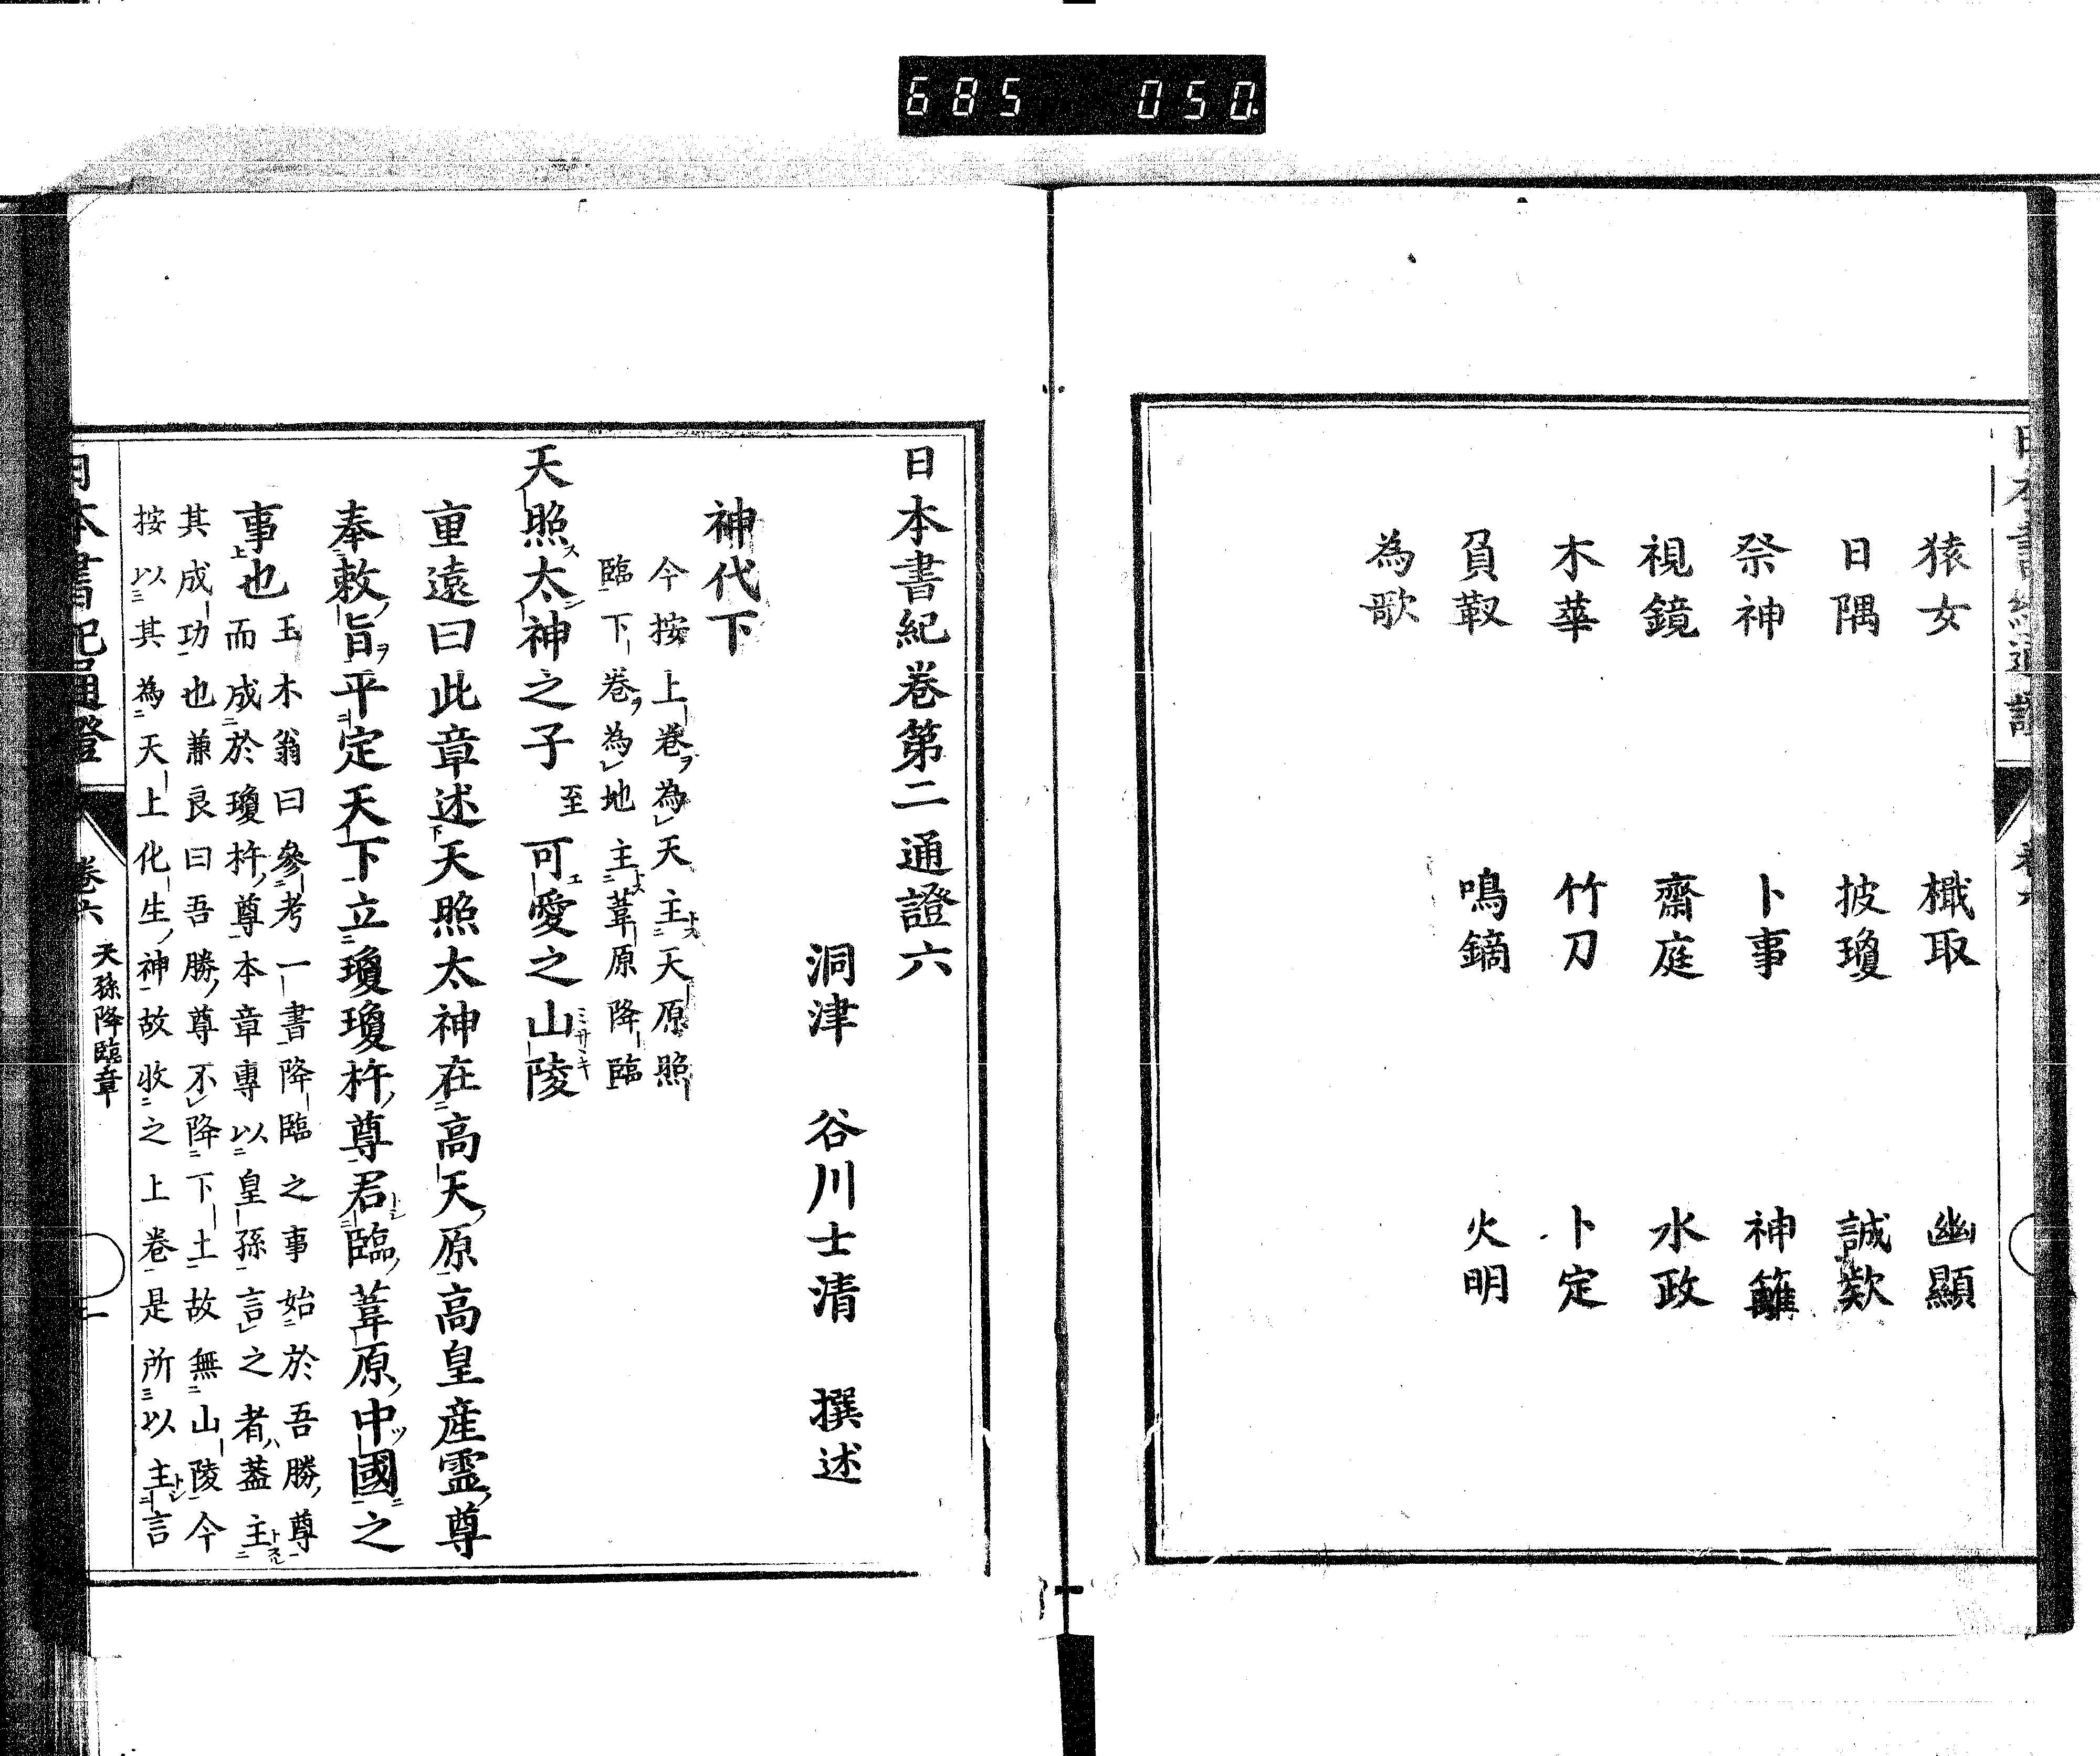 685 050
猿女 檝取 幽顯
日隅 披瓊 誠欵
祭神 卜事 神籬
視鏡 齋庭 水政
木華 竹刀 卜定
負靫 鳴鏑 火明
為歌
日本書紀卷第二通證六
洞津 谷川士清 撰述
神代下
今按上卷ヲ為天主トス天原照
臨下卷ヲ為地主トス葦原降臨
天照太神之子至可愛之山陵
重遠曰此章述天照太神在高天原高皇産霊尊
奉敕旨平定天下立瓊瓊杵尊君臨葦原中國之
事也玉木翁曰參考一書降臨之事始於吾勝尊
而成於瓊杵尊本章專以皇孫言之者蓋主
其成功也兼良曰吾勝尊不降下土故無山陵今
按以其為天上化生神故收之上卷是所以主言
日本書紀通證 卷六 天孫降臨章 一